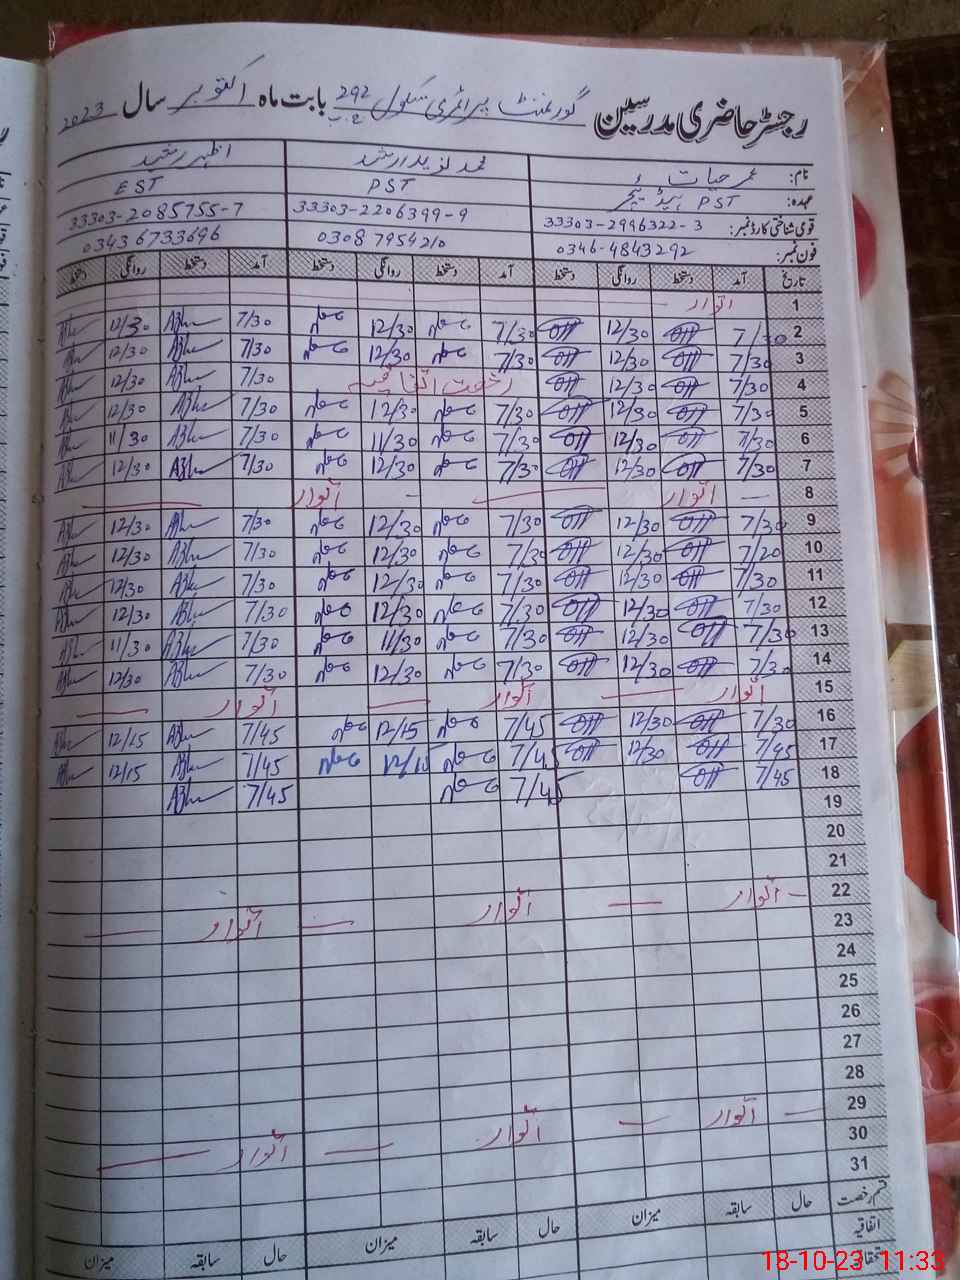 رجسٹر حاضری مدرسین گورنمنٹ پرائمری سکول 292 بابت ماہ اکتوبر سال 2023
نام: عمر حیات محمد نوید ارشد اظہر رشید
عہدہ: PST ہیڈ ٹیچر PST EST
قومی شناختی کارڈ نمبر: 33303-2996322-3 33303-2206399-9 33303-2085755-7
فون نمبر: 0346-4843292 0308 7954210 0343 6733696
تاریخ آمد دستخط روانگی دستخط آمد دستخط روانگی دستخط آمد دستخط روانگی دستخط
1 اتوار
2 7/30 12/30 7/30 12/30 7/30 12/30
3 7/30 12/30 7/30 12/30 7/30 12/30
4 7/30 12/30 رخصت اتفاقیہ 7/30 12/30
5 7/30 12/30 7/30 12/30 7/30 12/30
6 7/30 12/30 7/30 11/30 7/30 11/30
7 7/30 12/30 7/30 12/30 7/30 12/30
8 اتوار اتوار
9 7/30 12/30 7/30 12/30 7/30 12/30
10 7/20 12/30 7/30 12/30 7/30 12/30
11 7/30 12/30 7/30 12/30 7/30 12/30
12 7/30 12/30 7/30 12/30 7/30 12/30
13 7/30 12/30 7/30 11/30 7/30 11/30
14 7/30 12/30 7/30 12/30 7/30 12/30
15 اتوار اتوار اتوار
16 7/30 12/30 7/45 12/15 7/45 12/15
17 7/45 12/30 7/45 12/15 7/45 12/15
18 7/45 7/45 7/45
19
20
21
22 اتوار اتوار اتوار
23
24
25
26
27
28
29 اتوار اتوار اتوار
30
31
قسم رخصت حال سابقہ میزان حال سابقہ میزان حال سابقہ میزان
اتفاقیہ
18-10-23 11:33